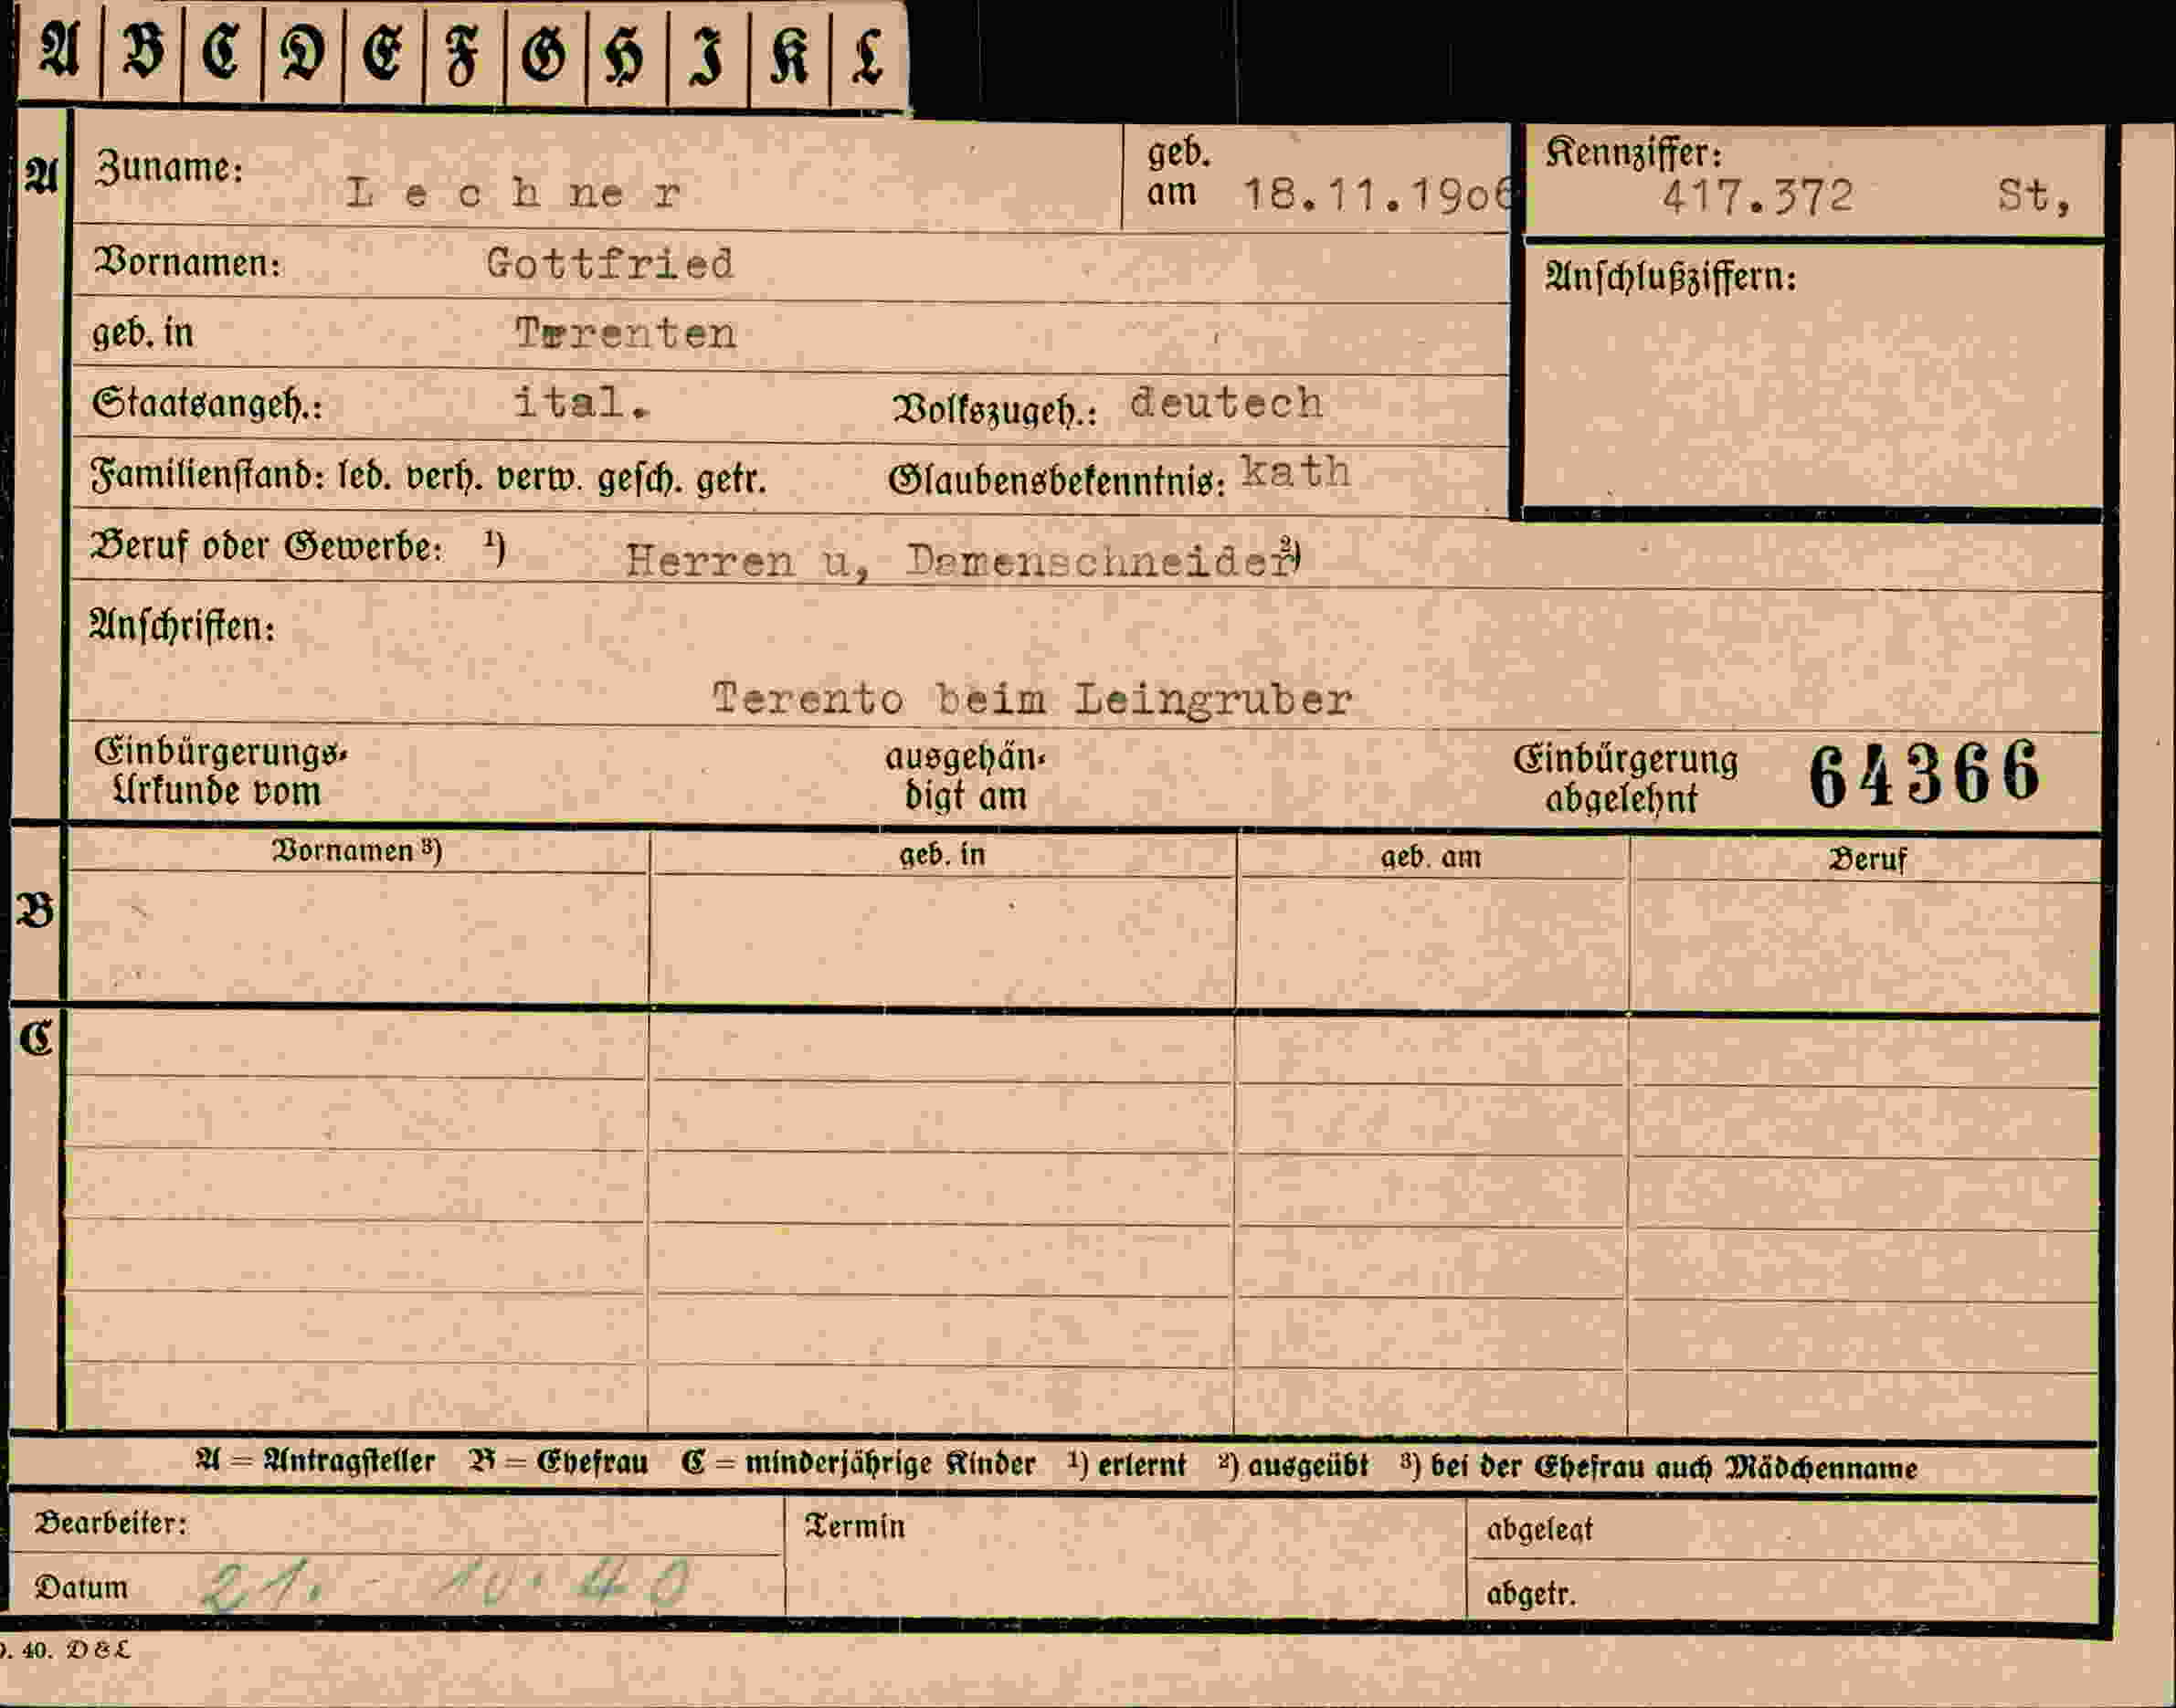 A B C D E F G H I K L
A Zuname: Lechner geb. am 18.11.19o6 Kennziffer: 417.372 St,
Vornamen: Gottfried Anschlußziffern:
geb. in Terenten
Staatsangeh.: ital. Volkszugeh.: deutech
Familienstand: led. verh. verw. gesch. getr. Glaubensbekenntnis: kath
Beruf oder Gewerbe: ¹) Herren u, Damenschneider ²)
Anschriften:
Terento beim Leingruber
Einbürgerungs- ausgehän- Einbürgerung 64366
Urkunde vom digt am abgelehnt
Vornamen ³) geb. in geb. am Beruf
B
C
A = Antragsteller B = Ehefrau C = minderjährige Kinder ¹) erlernt ²) ausgeübt ³) bei der Ehefrau auch Mädchenname
Bearbeiter: Termin abgelegt
Datum 21. - 10. 40 abgetr.
. 40. D & L